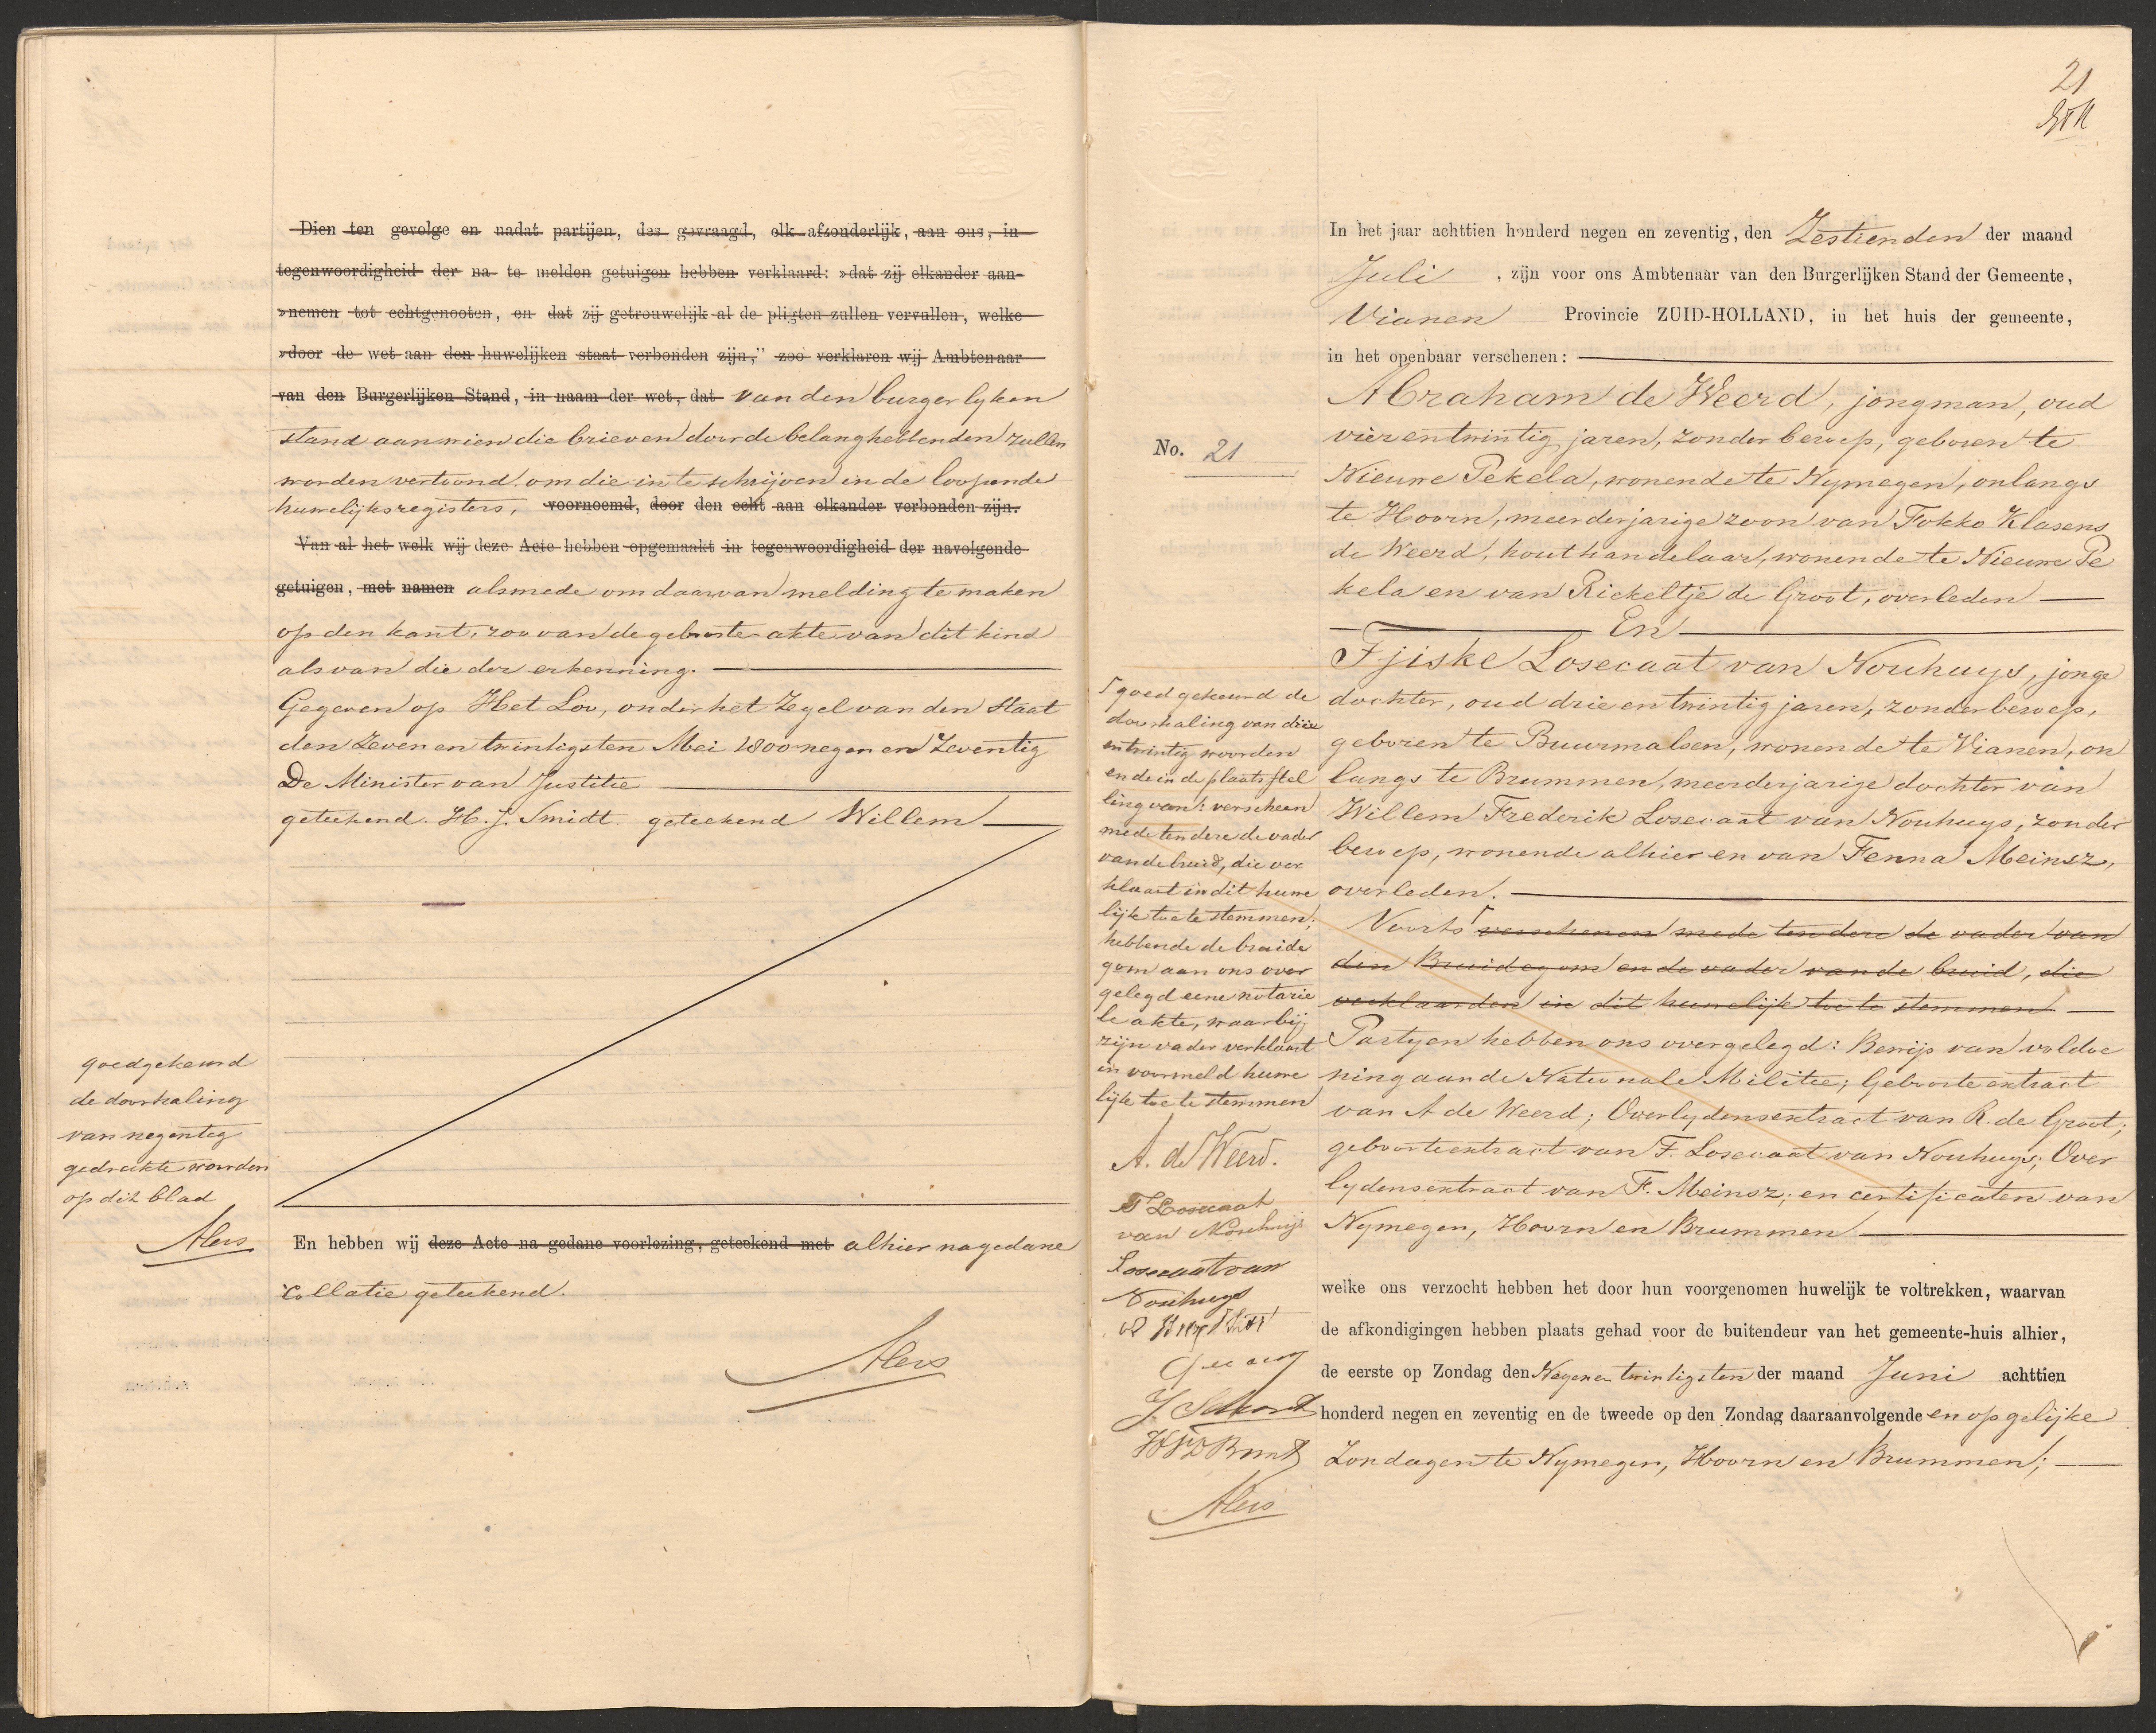 Dien ten gevolge en nadat partijen, des gevraagd, elk afzonderlijk, aan ons, in
tegenwoordigheid der na te melden getuigen hebben verklaard: »dat zij elkander aan-
»nemen tot echtgenooten, en dat zij getrouwelijk al de pligten zullen vervullen, welke
»door de wet aan den huwelijken staat verbonden zijn," zoo verklaren wij Ambtenaar
van den Burgerlijken Stand, in naam der wet, dat van den burgerlyken
stand aan wien die brieven door de belanghebbenden zullen
worden vertoond om die in te schrijven in de loopende
huwelijksregisters, voornoemd, door den echt aan elkander verbonden zijn.
Van al het welk wij deze Acte hebben opgemaakt in tegenwoordigheid der navolgende
getuigen, met namen alsmede om daarvan melding te maken
op den kant, zoo van de geboorte akte van dit kind
als van die der erkenning.
Gegeven op Het Loo, onder het Zegel van den Staat
den Zeven en twintigsten Mei 1800 negen en Zeventig
De Minister van Justitie
geteekend. H. J. Smidt. geteekend Willem
goedgekeurd
de doorhaling
van negentig
gedrukte woorden
op dit blad
Alers
En hebben wij deze Acte na gedane voorlezing, geteekend met alhier na gedane
Collatie geteekend.
Alers
21
In het jaar achttien honderd negen en zeventig, den Zestienden der maand
Juli , zijn voor ons Ambtenaar van den Burgerlijken Stand der Gemeente,
Vianen Provincie ZUID-HOLLAND, in het huis der gemeente,
in het openbaar verschenen:
No. 21
Abraham de Weerd, jongman, oud
vier en twintig jaren, zonder beroep, geboren te
Nieuwe Pekela, wonende te Nymegen, onlangs
te Hoorn, meerderjarige zoon van Fokko Klasens
de Weerd, houthandelaar, wonende te Nieuwe Pe
kela en van Rickeltje de Groot, overleden
En
Fjiske Losecaat van Nouhuys, jonge
dochter, oud drie en twintig jaren, zonder beroep,
geboren te Buurmalsen, wonende te Vianen, on
langs te Brummen, meerderjarige dochter van
Willem Frederik Losecaat van Nouhuys, zonder
beroep, wonende alhier en van Fenna Meinsz,
overleden.
Voorts verschenen mede ten dere de vader van
den Bruidegom en de vader van de bruid, die
verklaarden in dit huwelijk toe te stemmen
Partyen hebben ons overgelegd: Bewijs van voldoe
ning aan de Nationale Militie; Geboorte extract
van A de Weerd; Overlydensextract van R. de Groot;
geboorteextract van F. Losecaat van Nouhuys; Over
lydensextract van F. Meinsz; en certificaten van
Nymegen, Hoorn en Brummen
welke ons verzocht hebben het door hun voorgenomen huwelijk te voltrekken, waarvan
de afkondigingen hebben plaats gehad voor de buitendeur van het gemeente-huis alhier,
de eerste op Zondag den Negen en twintigsten der maand Juni achttien
honderd negen en zeventig en de tweede op den Zondag daaraanvolgende en op gelijke
Zondagen te Nymegen, Hoorn en Brummen;
goedgekeurd de
doorhaling van drie
en twintig woorden
en de in de plaatsstel
ling van: verscheen
mede ten dere de vader
van de bruid, die ver
klaart in dit huwe
lijk toe te stemmen;
hebbende de bruide
gom aan ons over
gelegd eene notarie
le akte, waarbij
zijn vader verklaart
in voormeld huwe
lijk toe te stemmen
A. de Weerd.
F Losecaat
van Nouhuys
Losecaat van
Nouhuys
Alers